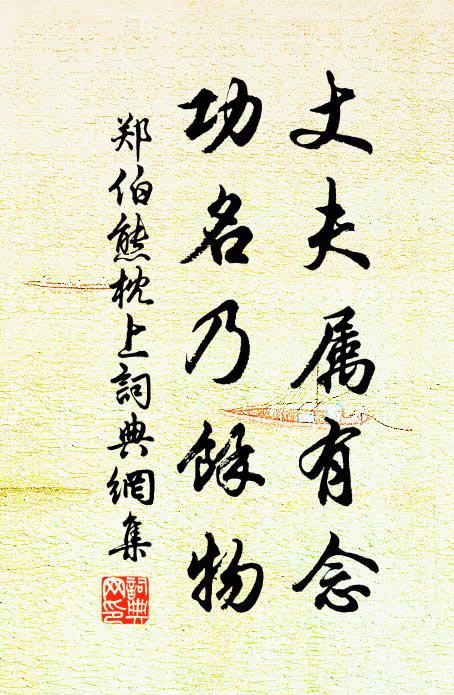 丈夫属有念
功名乃餘物
郑伯熊枕上詞典網集
詞典网印